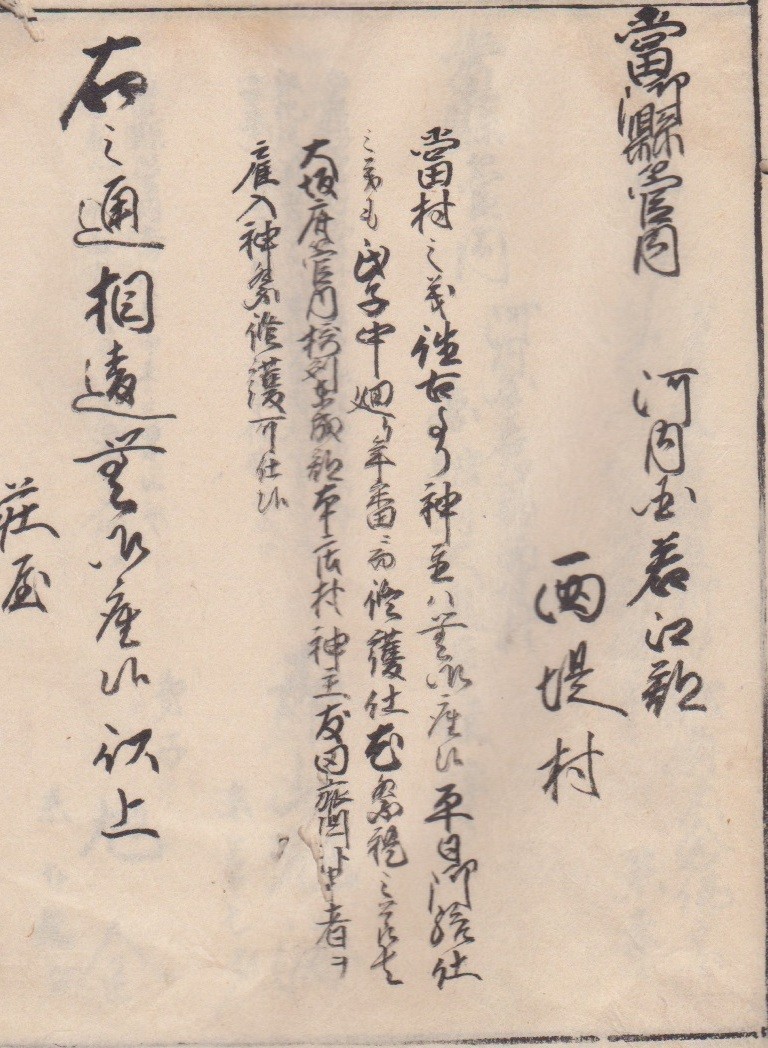 當御縣管内 河内国若江郡
西堤村
當村之義往古ゟ神主ハ無御座候平日御給仕
之義も氏子中廻り年番ニ而修護仕尤祭禮之節は
大坂府管内摂州東成郡本庄村神主友田旅関与申者ヲ
雇入神祭修護可仕候
右之通相違無御座候以上
荘屋